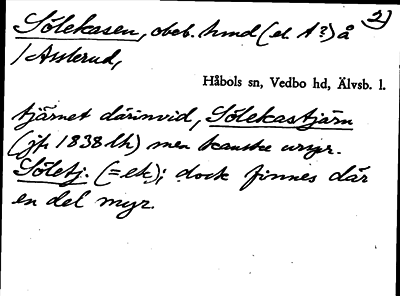 Sölekasen, obeb. hmd (el. t?) å 2)
/Assterud,
Håbols sn, Vedbo hd, Älvsb. l.
tjärnet därinvid, Sölekastjärn
(jfr 1838 lh) men kanske urspr.
Söletj. (= ek); dock finnes där
en del myr.